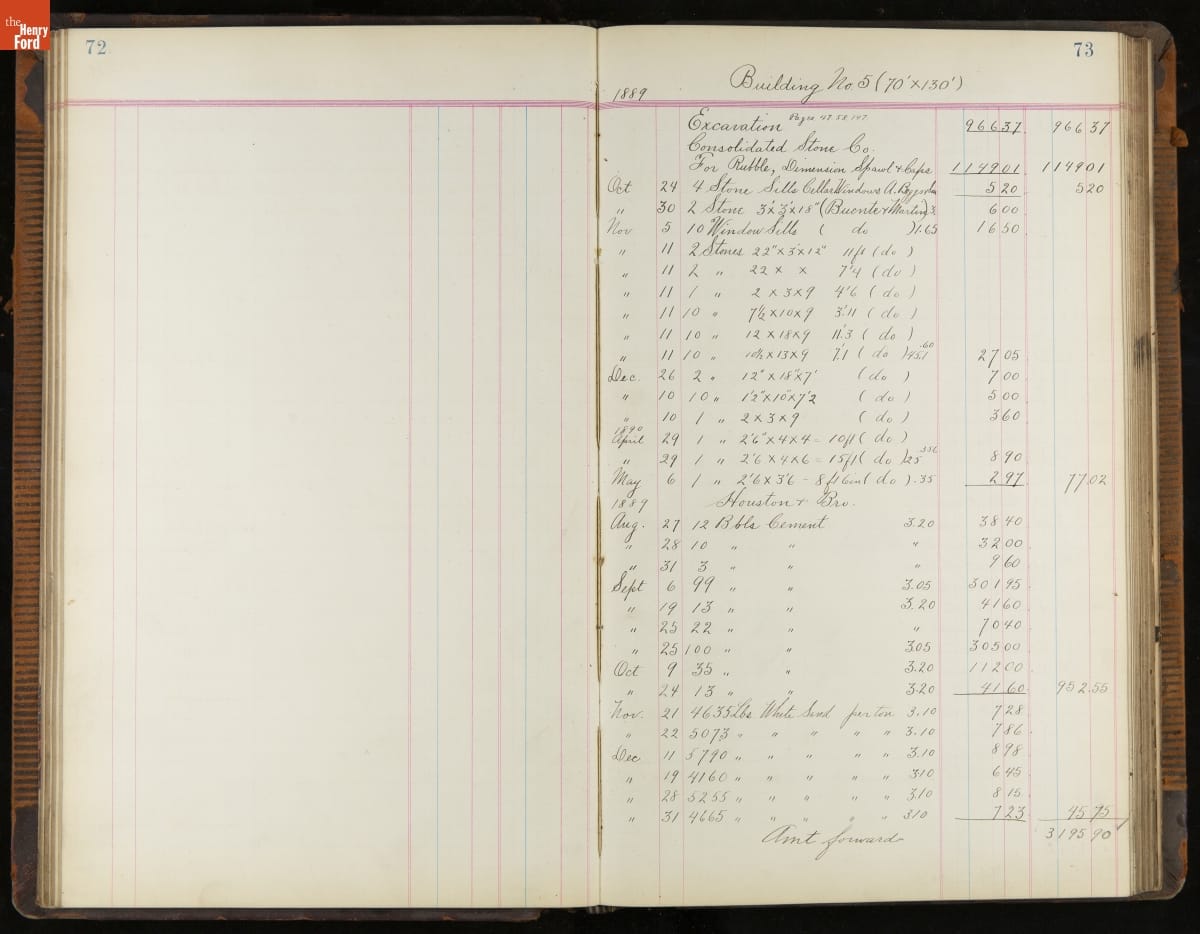 the
Henry
Ford
72
73
Building No. 5 (70'x130')
1889
Excavation Pages 47.58.147. 966 37 966 37
Consolidated Stone Co.
For Rubble, Dimension Spawl & Caps 1149 01 1149 01
Oct 24 4 Stone Sills Cellar Windows A. 5 20 5 20
" 30 2 Stone 3'x3'x18" (Buente & Martin) 6 00
Nov 5 10 Window Sills ( do ) 1.65 16 50
" 11 2 Stones 22"x3'x12" 11 ft (do)
" 11 2 " 22 x x 7'4 (do)
" 11 1 " 2 x 3 x 9 4'6 (do)
" 11 10 " 7½ x 10 x 9 3'.11 (do)
" 11 10 " 12 x 18 x 9 11'.3 (do)
" 11 10 " 10½ x 13 x 9 7'.1 (do) 45.1 .60 27 05
Dec. 26 2 " 12" x 18" x 7' (do) 7 00
" 10 10 " 1'2" x 10" x 7'2 (do) 5 00
" 10 1 " 2 x 3 x 9 (do) 3 60
1890
April 29 1 " 2'6" x 4 x 4 = 10 ft (do)
" 29 1 " 2'6 x 4 x 6 = 15 ft (do) 25 8 90
May 6 1 " 2'6 x 3'6 - 8 ft 6 in (do) .35 2 97 77 02
1889 Houston & Bro.
Aug. 27 12 Bbls Cement 3.20 38 40
" 28 10 " " " 32 00
" 31 3 " " " 9 60
Sept 6 99 " " 3.05 301 95
" 19 13 " " 3.20 41 60
" 25 22 " " " 70 40
" 25 100 " " 3.05 305 00
Oct 9 35 " " 3.20 112 00
" 24 13 " " 3.20 41 60 952.55
Nov. 21 4635 Lbs White Sand per ton 3.10 7 28
" 22 5073 " " " " " 3.10 7 86
Dec 11 5790 " " " " " 3.10 8 98
" 19 4160 " " " " " 3.10 6 45
" 28 5255 " " " " " 3.10 8 15
" 31 4665 " " " " " 3.10 7 23 45 75
Amt forward 3195 90